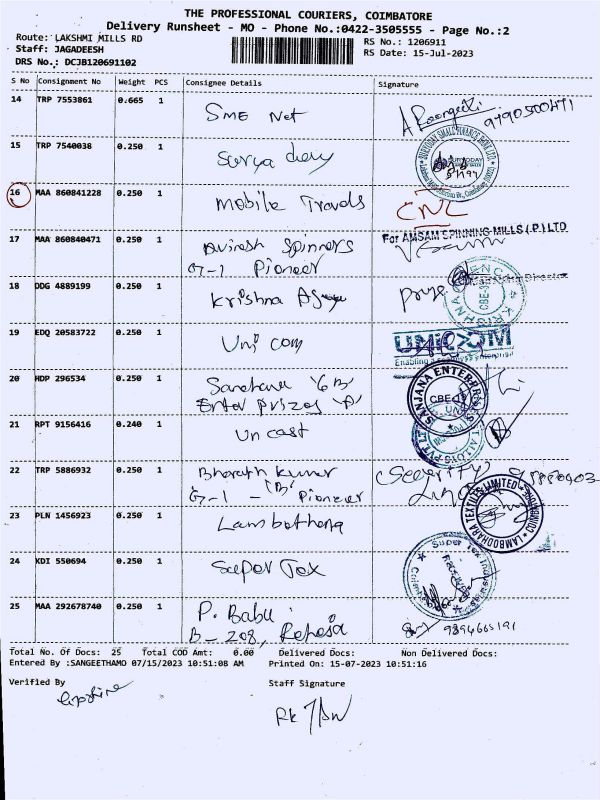 THE PROFESSIONAL COURIERS, COIMBATORE
Delivery Runsheet - MO - Phone No.:0422-3505555 - Page No.:2
Route: LAKSHMI MILLS RD
RS No.: 1206911
Staff: JAGADEESH
RS Date: 15-Jul-2023
DRS No.: DCJB120691102
S No Consignment No Weight PCS Consignee Details Signature
14 TRP 7553861 0.665 1 SME Net
15 TRP 7540038 0.250 1 Surya
16 MAA 860841228 0.250 1 Mobile Travels CNL
17 MAA 860840471 0.250 1 Avinesh Spinners For AMSAM SPINNING MILLS (P) LTD
G-1 Pioneer
18 DDG 4889199 0.250 1 Krishna
19 EDQ 20583722 0.250 1 Uni com UNICOM
20 HDP 296534 0.250 1 Sanjana 'G B' SANJANA ENTERPRISES CBE-18
Enter prizes 'A'
21 RPT 9156416 0.240 1 Un cast
22 TRP 5886932 0.250 1 Bharath Kumar (Security)
G-1 - 'B' Pioneer
23 PLN 1456923 0.250 1 Lambothara LAMBODHARA TEXTILES LIMITED
24 KDI 550694 0.250 1 Super Tex Super Tex
25 MAA 292678740 0.250 1 P. Babu
B-208, 9894665191
Total No. Of Docs: 25 Total COD Amt: 0.00 Delivered Docs: Non Delivered Docs:
Entered By :SANGEETHAMO 07/15/2023 10:51:08 AM Printed On: 15-07-2023 10:51:16
Verified By Staff Signature